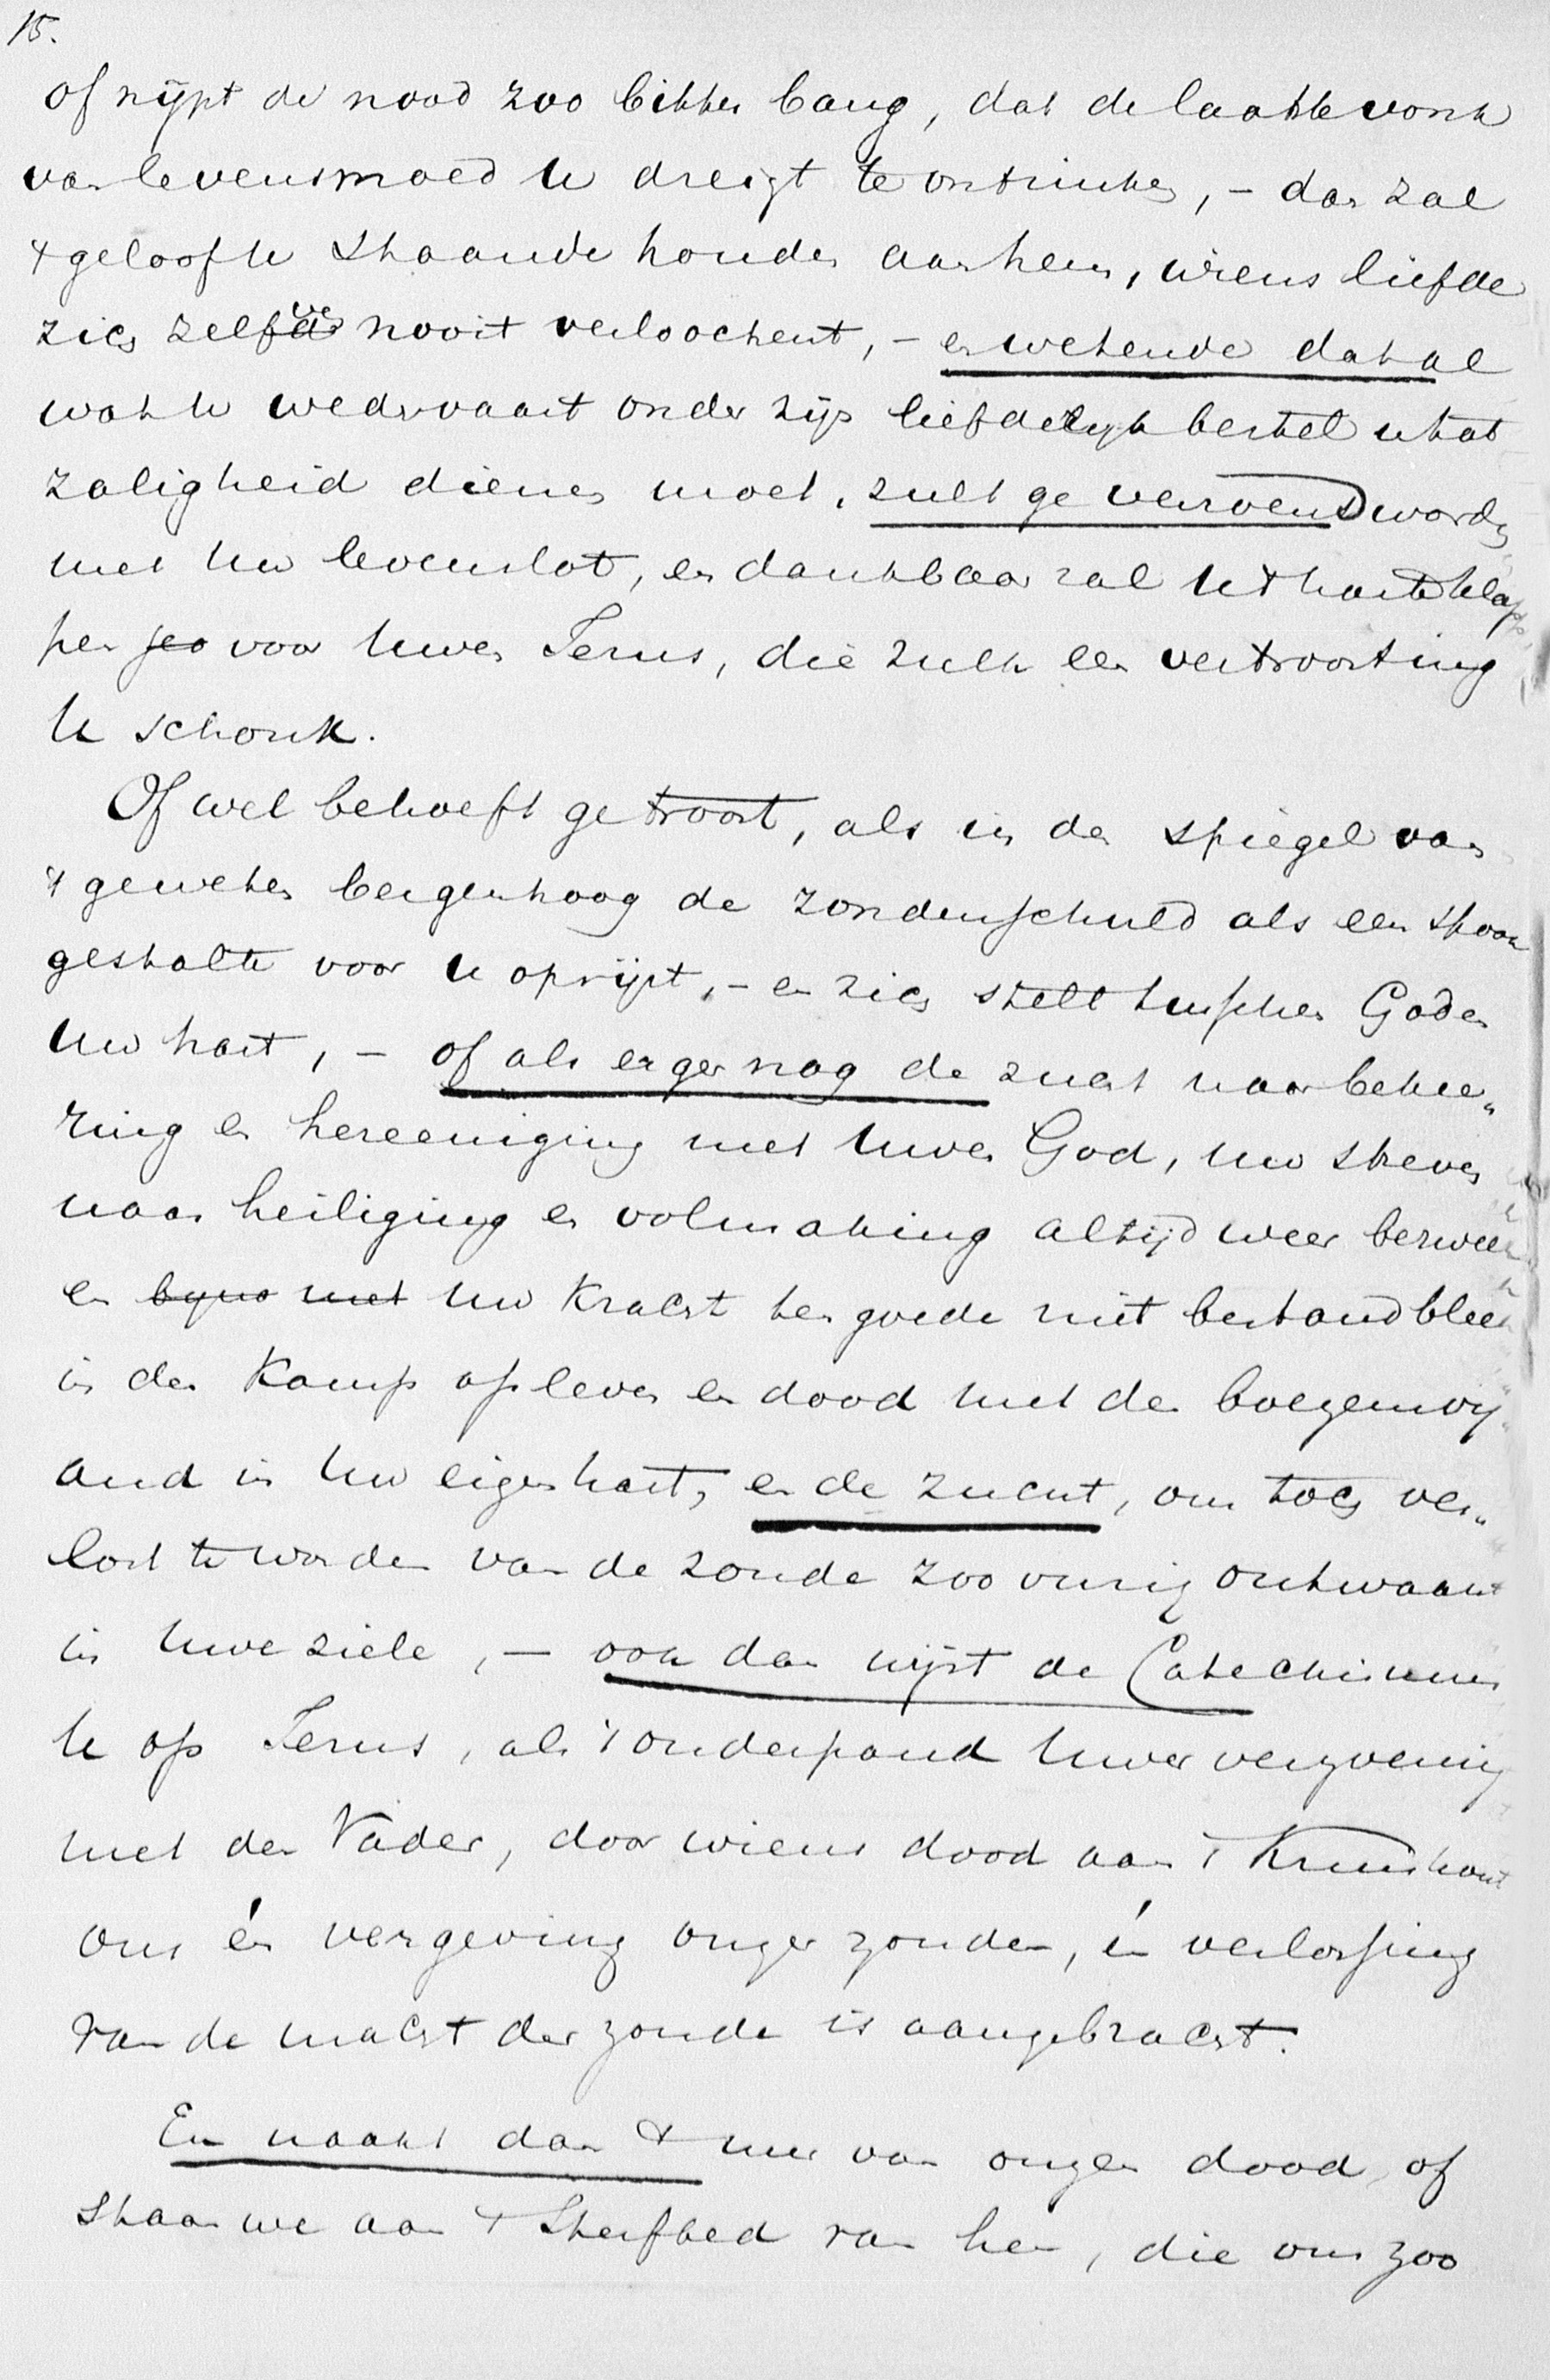 15.
of nijpt de nood zoo bitter bang, dat de laatste vonk
van levensmoed u dreigt te ontzinken, – dan zal
't geloof u staande houden aan hem, wiens liefde
zich zelve nooit verloochent, – en wetende dat al
wat u wedervaart onder zijn liefderijk bestel u tot
zaligheid dienen moet, zult ge verzoend worden
met uw levenslot, en dankbaar zal u 't harte klop-
pen voor uwen Jezus, die zulk een vertroosting
u schonk.
Of wel behoeft ge troost, als in den spiegel van
't geweten bergenhoog de zondenschuld als een spook
gestalte voor u oprijst, – en zich stelt tusschen God en
uw hart, – of als erger nog de zucht naar bekee„
ring en hereeniging met uwen God, uw streven
naar heiliging en volmaking altijd weer bezweek
en bijna met uw kracht ten goede niet bestand bleek
in den kamp op leven en dood met den boezemvij„
and in uw eigen hart, en de zucht, om toch ver„
lost te worden van de zonde zoo vurig ontwaakt
in uwe ziele, – ook dan wijst de Catechismus
u op Jezus, als 't onderpand uwer verzoening
met den Vader, door wiens dood aan 't kruishout
ons én vergeving onzer zonden, én verlossing
van de macht der zonde is aangebracht.
En naakt dan 't uur van onzen dood, of
staan we aan 't sterfbed van hen, die ons zoo